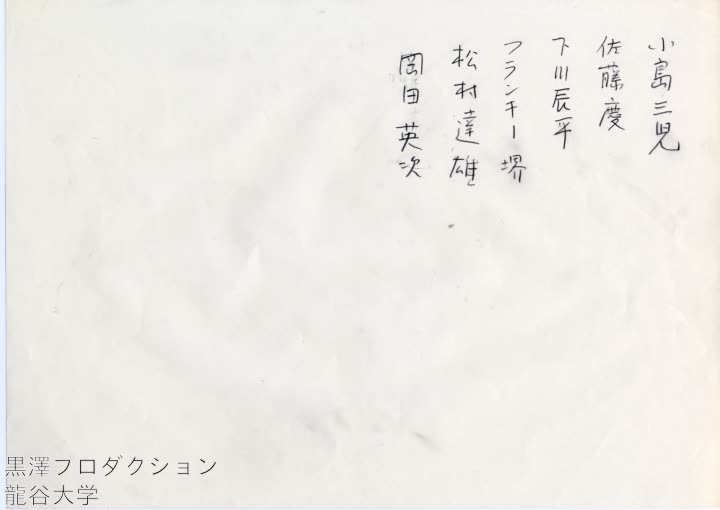 小島三児
佐藤慶
下川辰平
フランキー堺
松村達雄
岡田英次
黒澤プロダクション
龍谷大学